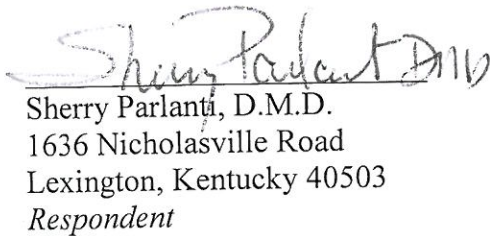 Sherry Parlanti DMD
Sherry Parlanti, D.M.D.
1636 Nicholasville Road
Lexington, Kentucky 40503
Respondent